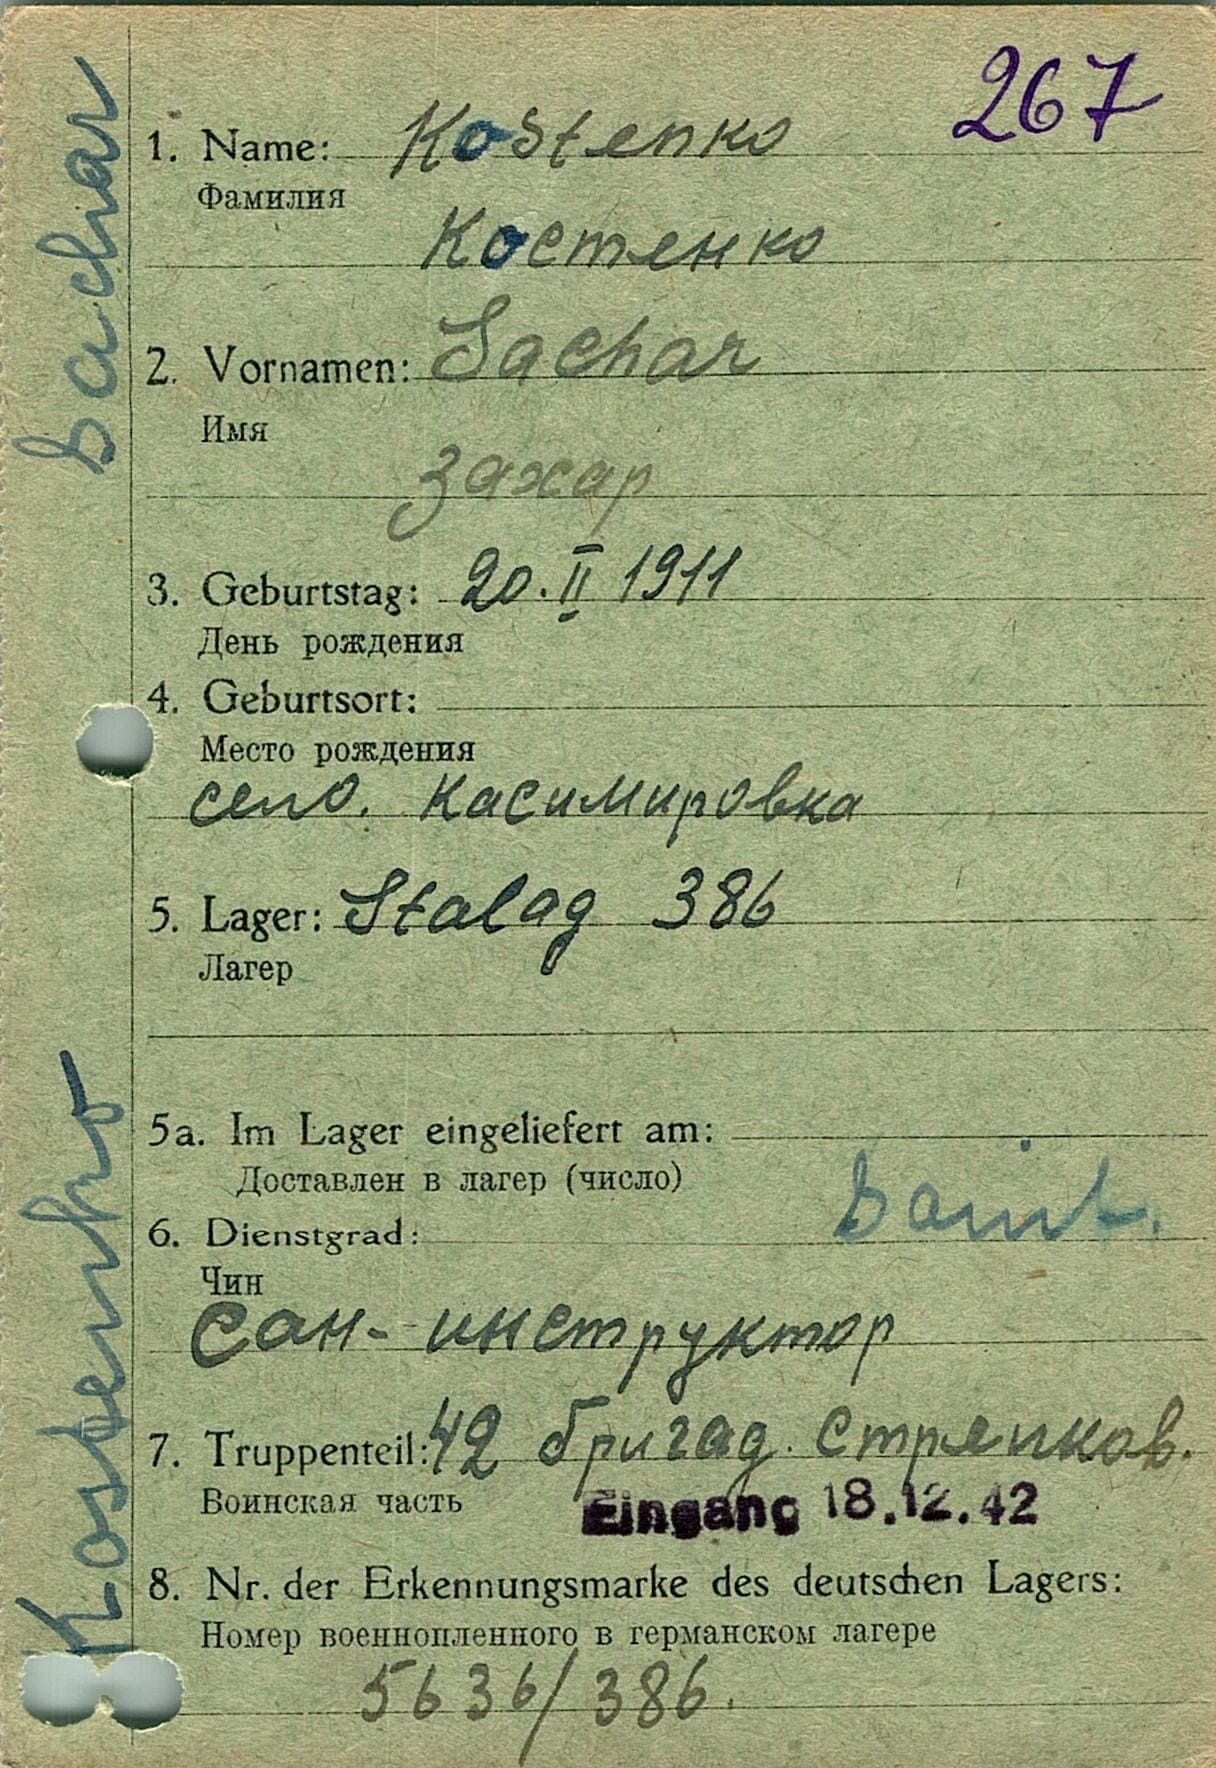 267
1. Name: Kostenko
Фамилия
Костенко
2. Vornamen: Sachar
Имя
Захар
3. Geburtstag: 20. II 1911
День рождения
4. Geburtsort:
Место рождения
село. Касимировка
5. Lager: Stalag 386
Лагер
5a. Im Lager eingeliefert am:
Доставлен в лагер (число)
6. Dienstgrad:
Чин
Сан-инструктор
7. Truppenteil: 42 бригад. стрелков.
Воинская часть
Eingang 18.12.42
8. Nr. der Erkennungsmarke des deutschen Lagers:
Номер военнопленного в германском лагере
5636/386.
Kostenko Sachar